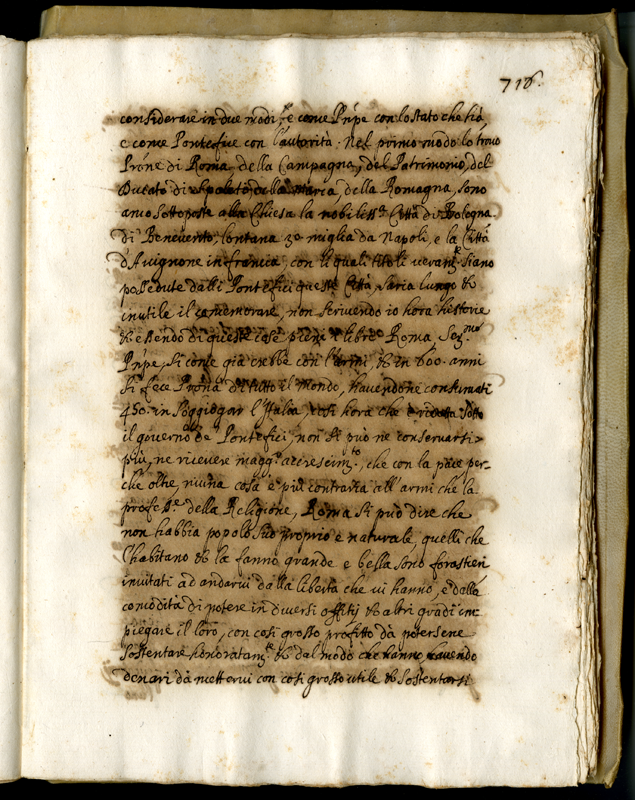 716.
considerare in due modi, e come Pñpe con lo stato che hà
e come Pontefice con l'autorità. Nel primo modo lo trovo
Prñe di Roma, della Campagna, del Patrimonio, del
Ducato di Spoleto, della Marca, della Romagna, sono
anco sottoposte alla Chiesa la nobiliss.ª Città di Bologna.
di Benevento, lontana 30 miglia da Napoli, e la Città
d'Avignone in francia, con li quali titoli veram.te siano
possedute dalli Pontefici queste Città, saria lungo &
inutile il comemorare, non scrivendo io hora historie
& essendo di queste cose pieni i libri. Roma, Seg.mo
Pñpe, si come già crebbe con l'armi, & in 600. anni
si fece Prona di tutto il Mondo, havendone consumati
450. in soggiogar l'Italia, così hora che è ridotta sotto
il governo de Pontefici, non si può ne conservarsi
più, ne ricevere magg.r accrescim.to, che con la pace per-
che oltre, niuna cosa è più contraria all'armi che la
profess.e della Religione, Roma si può dire che
non habbia popolo suo proprio e naturale, quelli che
l'habitano & la fanno grande e bella sono forastieri
invitati ad andarvi dalla libertà che vi hanno, e dalla
comodità di potere in diversi offitij & altri gradi im
piegare il loro, con così grosso profitto dà potersene
sostentare honoratam.te & dal modo che hanno, havendo
denari dà mettervi con così grosso utile & sostentarsi